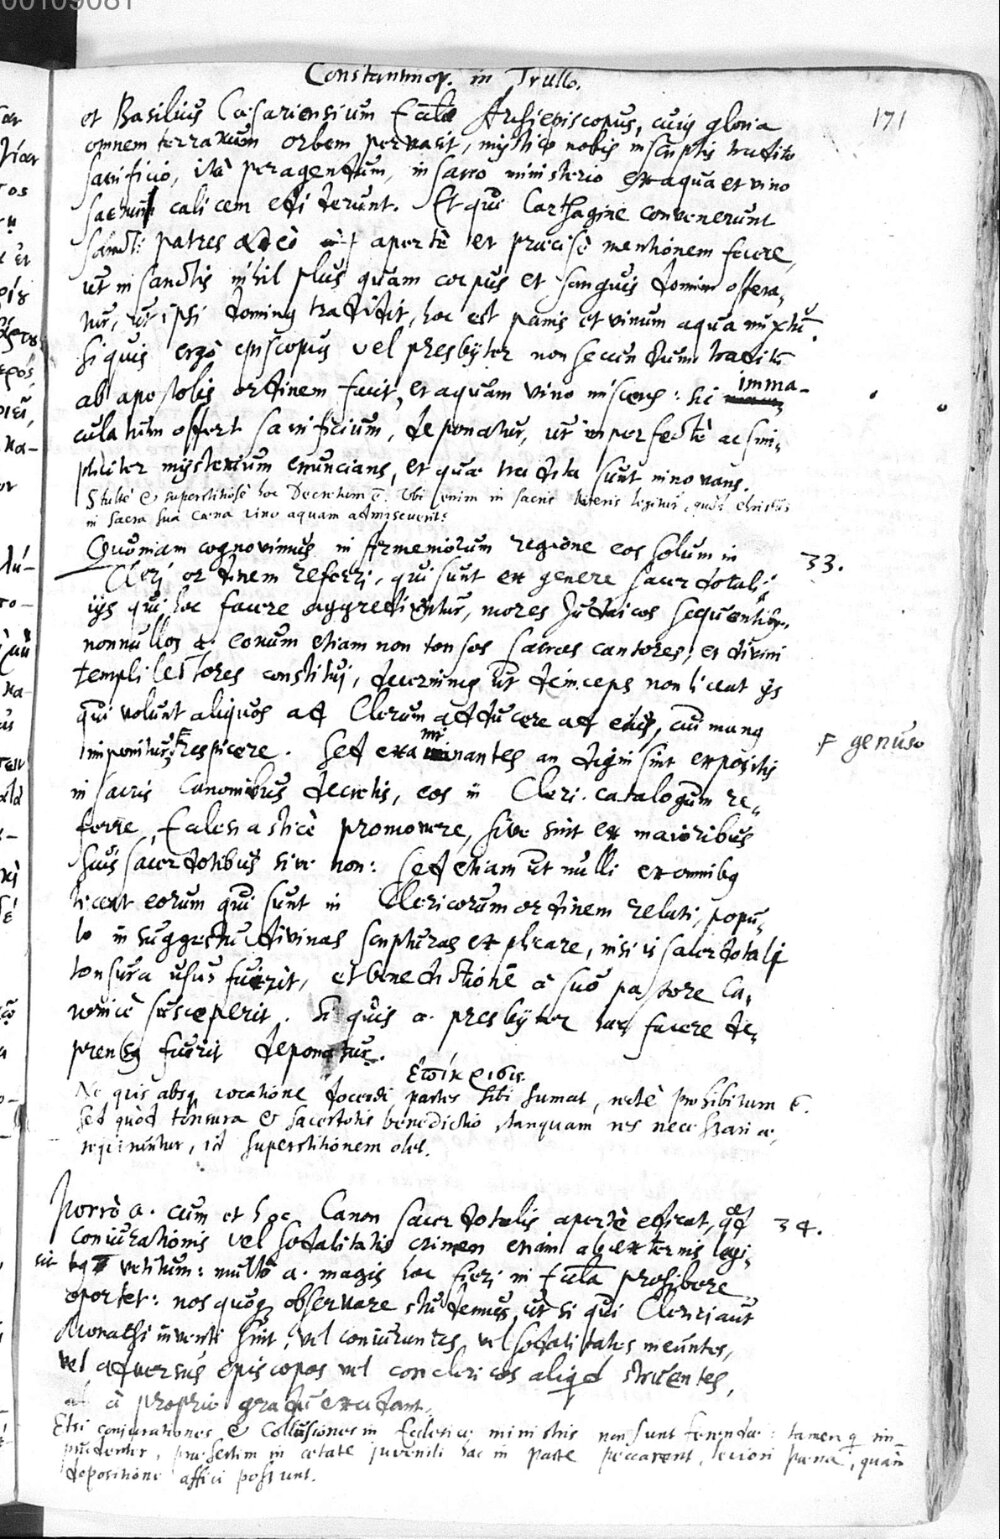 00109081
Constantinop. in Trullo.
171
et Basilius Cæsariensium Eccla Archiepiscopus, cuius gloria
omnem terrarum orbem pervasit, mysticè nobis in scriptis tradito
sacrificio, ità peragendum, in sacro ministerio ex aqua et vino
sacrum calicem ediderunt. Et qui Carthagine convenerunt
sancti patres adeò apertè et præcisè mentionem fecere,
ut in sanctis nihil plus quam corpus et sanguis domini offera-
tur, ut ipse dominus tradidit, hoc est panis et vinum aqua mixtū.
Siquis ergò episcopus vel presbyter non secundum traditū
ab apostolis ordinem facit, et aquam vino miscens: sic imma-
culatum offert sacrificium, deponatur, ut imperfectè ac sim-
pliciter mysterium enuncians, et quæ tradita sunt innovans.
Stultè et superstitiosè hoc Decretum ē. Ubi enim in sacris literis legitur, quòd Christus
in sacra sua cœna vino aquam admiscuerit?
Quoniam cognovimus in Armeniorum regione eos solum in 33.
Cleri ordinem referri, qui sunt ex genere sacerdotali,
ijs qui hoc facere aggrediuntur, mores Judaicos sequentibus,
nonnullos a. eorum etiam non tonsos sacros cantores, et divini
templi lectores constitui, decernimus ut deinceps non liceat ijs
qui volunt aliquos ad Clerum adducere ad eius, cui manus
imponitur, F respicere. Sed examinantes an digni sint expositis F genus
in sacris Canonibus decretis, eos in Cleri catalogum re-
ferre, Ecclesiasticè promovere, sive sint ex maioribus
suis sacerdotibus sive non: sed etiam ut nulli ex omnibus
liceat eorum qui sunt in Clericorum ordinem relati, popu-
lo in suggestu divinas scripturas explicare, nisi is sacerdotali
tonsura usus fuerit, et benedictionē à suo pastore Ca-
nonicè susceperit. Si quis a. presbyter hac facere de-
prensus fuerit deponatur.
Ne quis absq. vocatione docendi partes sibi sumat, rectè prohibitum ē.
Sed quòd tonsura et sacerdotis benedictio, tanquam res necessariæ,
requiruntur, id superstitionem olet.
Porrò a. cum et hoc Canon sacerdotalis apertè edicat, qd 34.
coniurationis vel sodalitatis crimen etiam ab externis legi-
bus sit vetitum: multò a. magis hoc fieri in Eccla prohibere
oportet: nos quoq. observare studemus, ut si qui Clerici aut
Monachi inventi sint, vel coniurantes, vel sodalitates ineuntes,
vel adversus episcopos vel conclericos aliqd struentes,
à proprio gradu excidant.
Etsi conjurationes et Collusiones in Ecclesiæ ministris non sunt ferendæ: tamen q im-
prudenter, præsertim in ætate juvenili hac in parte peccarent, leviori pœna, quàm
depositione affici possunt.